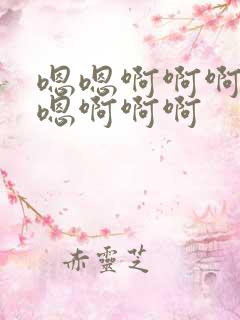 嗯嗯啊啊啊
嗯啊啊啊
赤靈芝